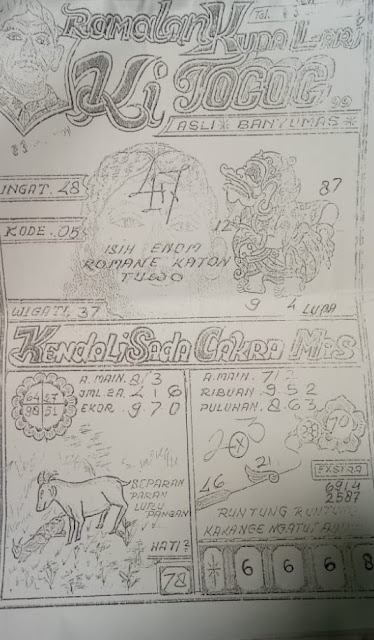 Ramalan Kuda Lari
Ki TOGOG 99
ASLI * BANYUMAS *
INGAT. 48
KODE. 05
WIGATI. 37
47
ISIH ENOM
ROMANE KATON
TUWO
87
12
9 4 LUPA
KENDALISADA CAKRA MAS
64 47
98 51
A. MAIN. 8/3
JML. 2A. 4 1 6
EKOR. 9 7 0
SEPARAN
PARAN
LUPU
TANGAN
HATI2
78
A. MAIN. 7/2
RIBUAN. 9 5 2
PULUHAN. 8 6 3
203
70
46
21
EXSTRA
6914
2587
RUNTUNG RUNTUNG
KAKANGE NGATUT
* 6 6 6 8